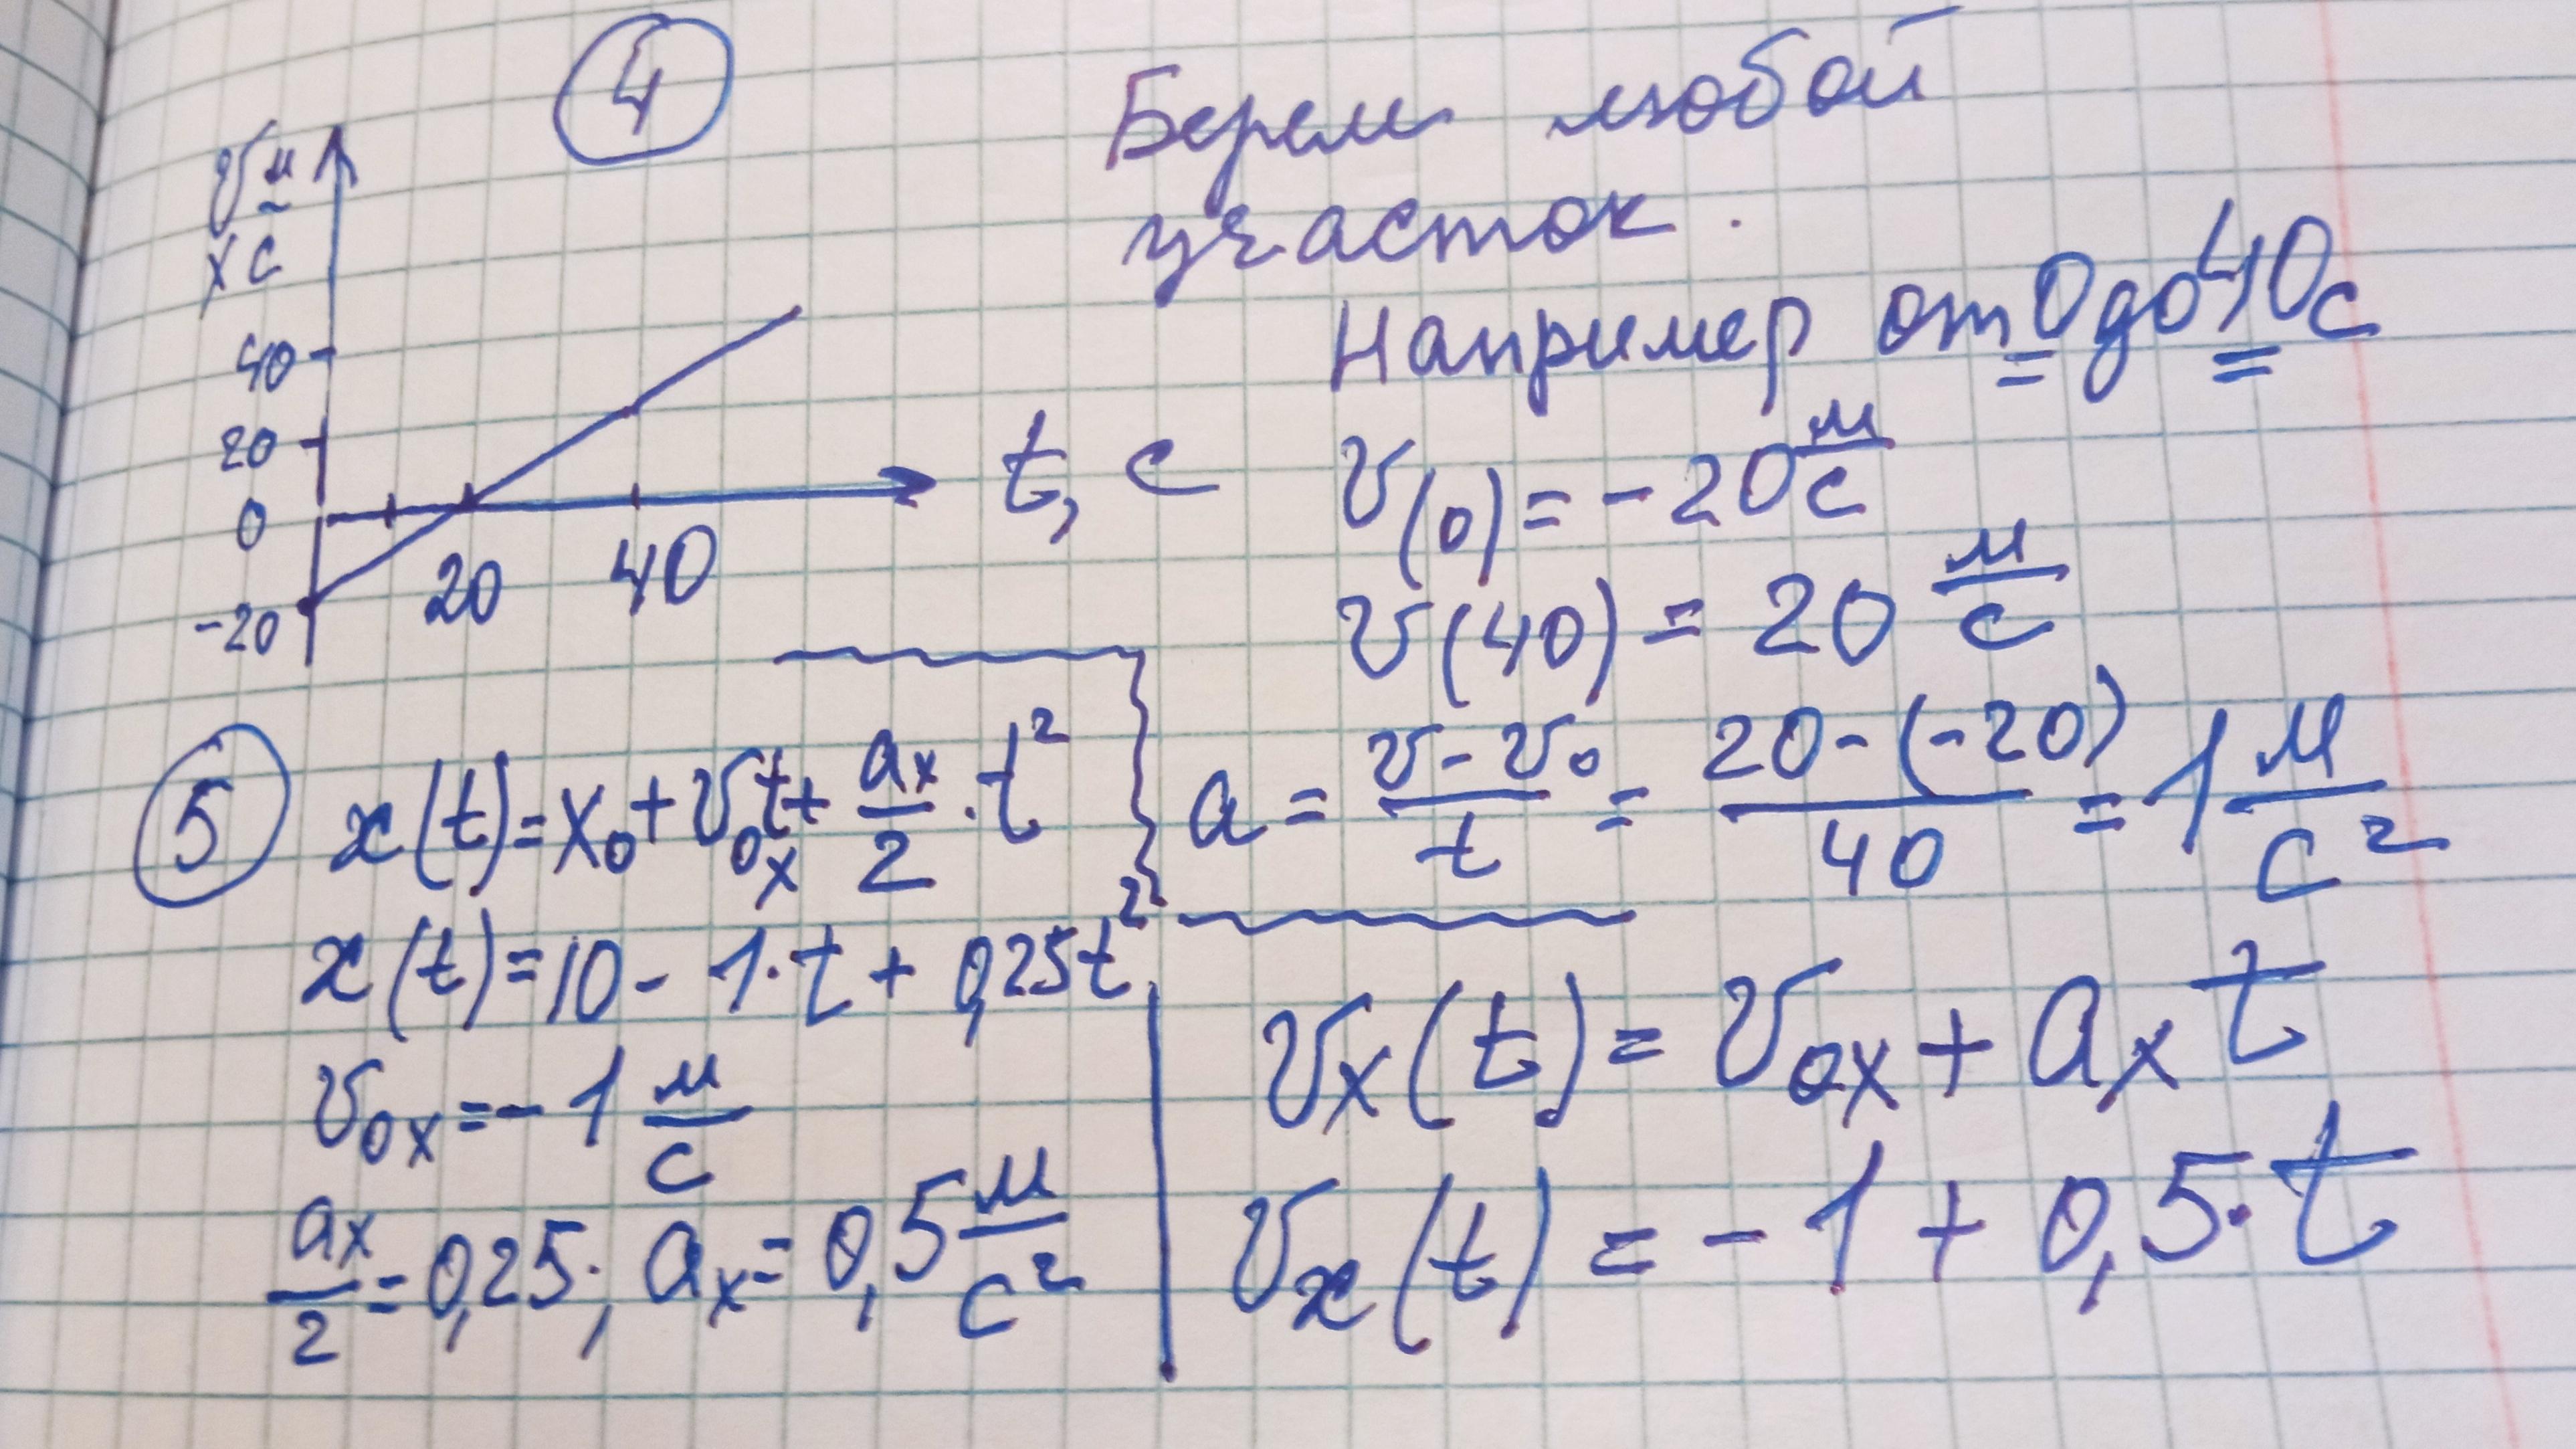 4
v м/с
x
40
20
0
-20
20 40
t, с
Берем любой
участок.
Например от 0 до 40 с
v(0) = -20 м/с
v(40) = 20 м/с
a = (v - v₀)/t = (20 - (-20))/40 = 1 м/с²
5
x(t) = x₀ + v₀ₓt + aₓ/2 · t²
x(t) = 10 - 1·t + 0,25t²
v₀ₓ = -1 м/с
aₓ/2 = 0,25; aₓ = 0,5 м/с²
vₓ(t) = v₀ₓ + aₓt
vₓ(t) = -1 + 0,5·t